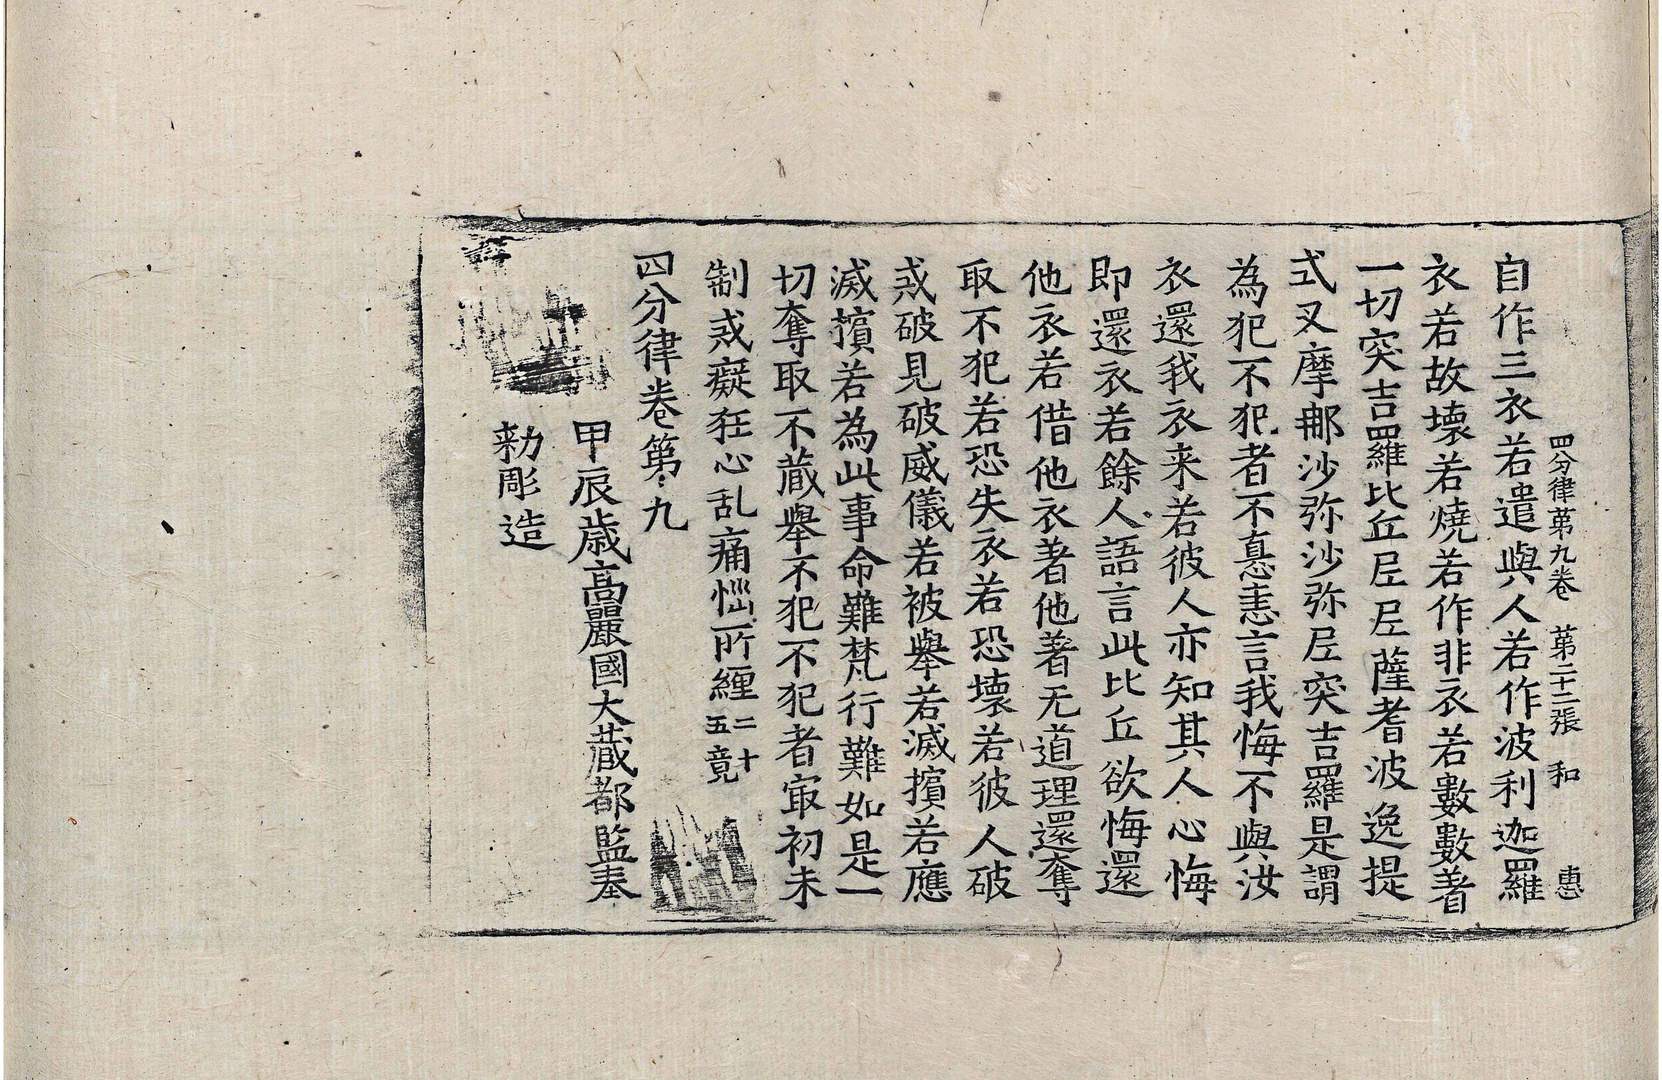 四分律苐九卷 苐二十二張 和 惠
自作三衣若遣與人若作波利迦羅
衣若故壞若燒若作非衣若數數著
一切突吉羅比丘尼尼薩耆波逸提
式叉摩那沙弥沙弥尼突吉羅是謂
為犯不犯者不恚恚言我悔不與汝
衣還我衣来若彼人亦知其人心悔
即還衣若餘人語言此比丘欲悔還
他衣若借他衣著他著无道理還奪
取不犯若恐失衣若恐壞若彼人破
戒破見破威儀若被舉若滅擯若應
滅擯若為此事命難梵行難如是一
切奪取不蔵舉不犯不犯者㝡初未
制戒癡狂心乱痛惱所纏二十五竟
四分律卷第九
甲辰歳高麗國大蔵都監奉
勑彫造